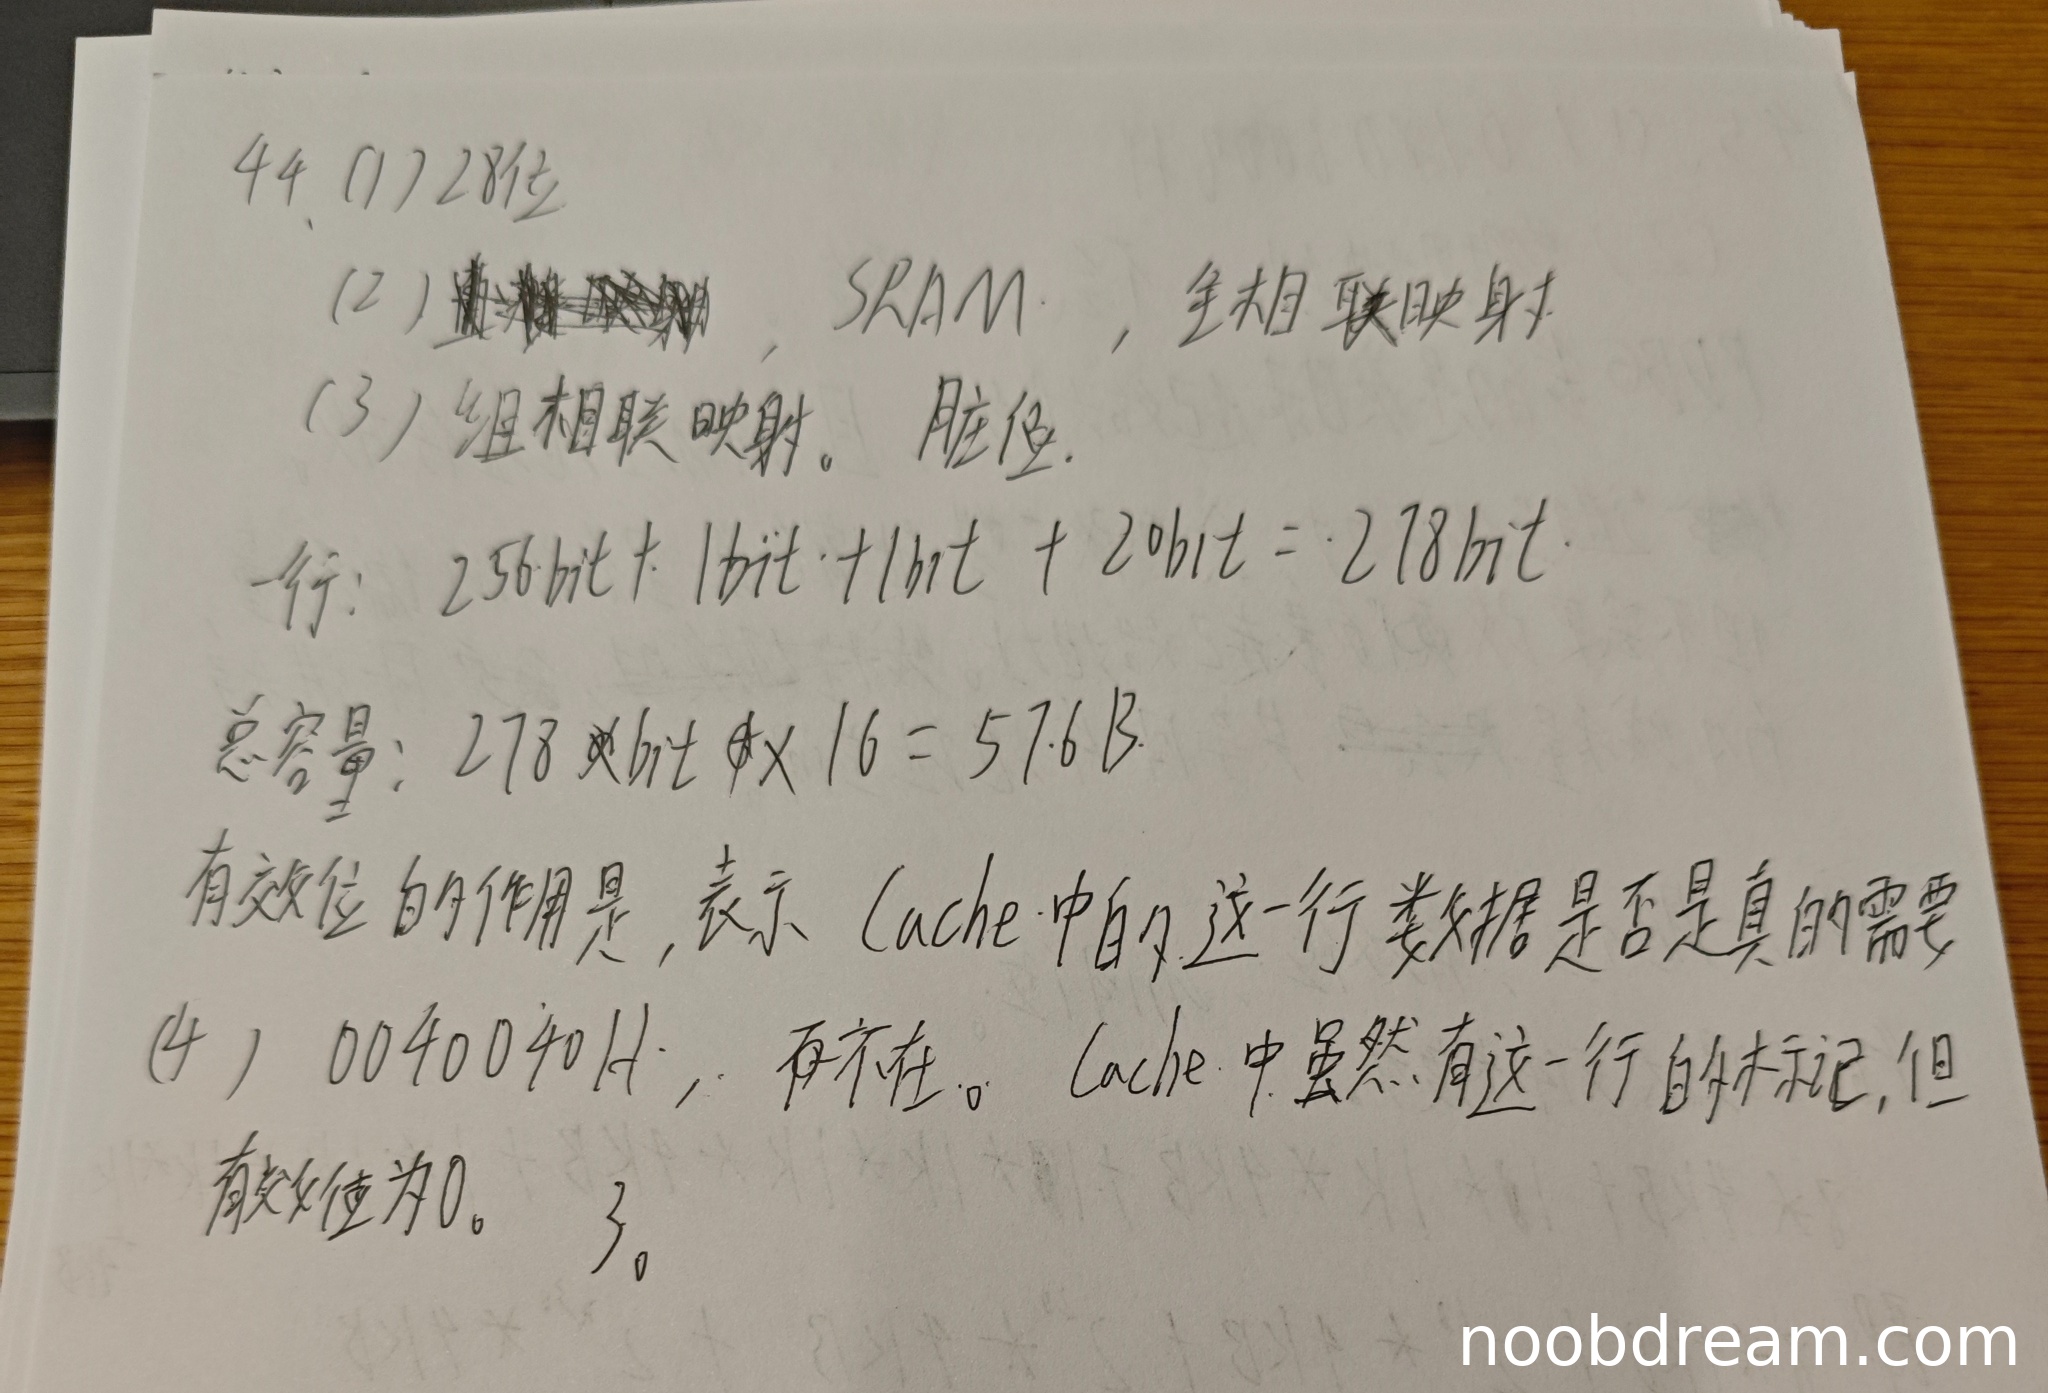 44、(1) 28位
(2) , SRAM , 全相联映射
(3) 组相联映射。 脏位.
一行: 256bit + 1bit + 1bit + 20bit = 278bit.
总容量: 278 bit × 16 = 57.6 B
有效位的作用是,表示 Cache 中的这一行数据是否是真的需要
(4) 0040040H, 不在。 Cache 中虽然有这一行的标记,但
有效值为0。 3。
noobdream.com